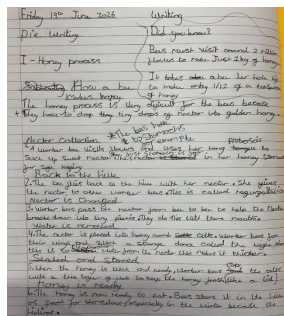 Friday 19th June 2026 Writing
Die Writing
Did you know?
Bees must visit around 2 million
flowers to make Just 1kg of honey
I - Honey process
It takes a bee her whole life
to make only 1/12 of a teaspoon
of honey
How a bee
makes honey
The honey process is very difficult for the bees because
they have to drop tiny tiny drops of nectar into golden honey.
The bees have
to stomachs
for example
Nectar Collection
1. A worker bee visits flowers and uses her long
to suck up sweet nectar. The nectar is stored in her honey stomach
Back to the hive
2. The bee flies back to the hive with her nectar. She gives
the nectar to other worker bees this is called
Nectar is Changed
3. Worker bees pass the nectar from bee to bee to help the nectar
break down into tiny pieces. They do this until there
Water is removed
4. The nectar is placed into honey comb cells. Worker bees fan
their wings and a strange dance called the
this is to water from the nectar this makes it thicker.
Sealed and Stored
5. When the honey is thick and ready, worker bees the cells
with a thin layer of wax to keep the honey (like a lid)
Honey is ready
6. The honey is now ready to eat. Bees store it in the hive
as food for the colony especially in the winter because the